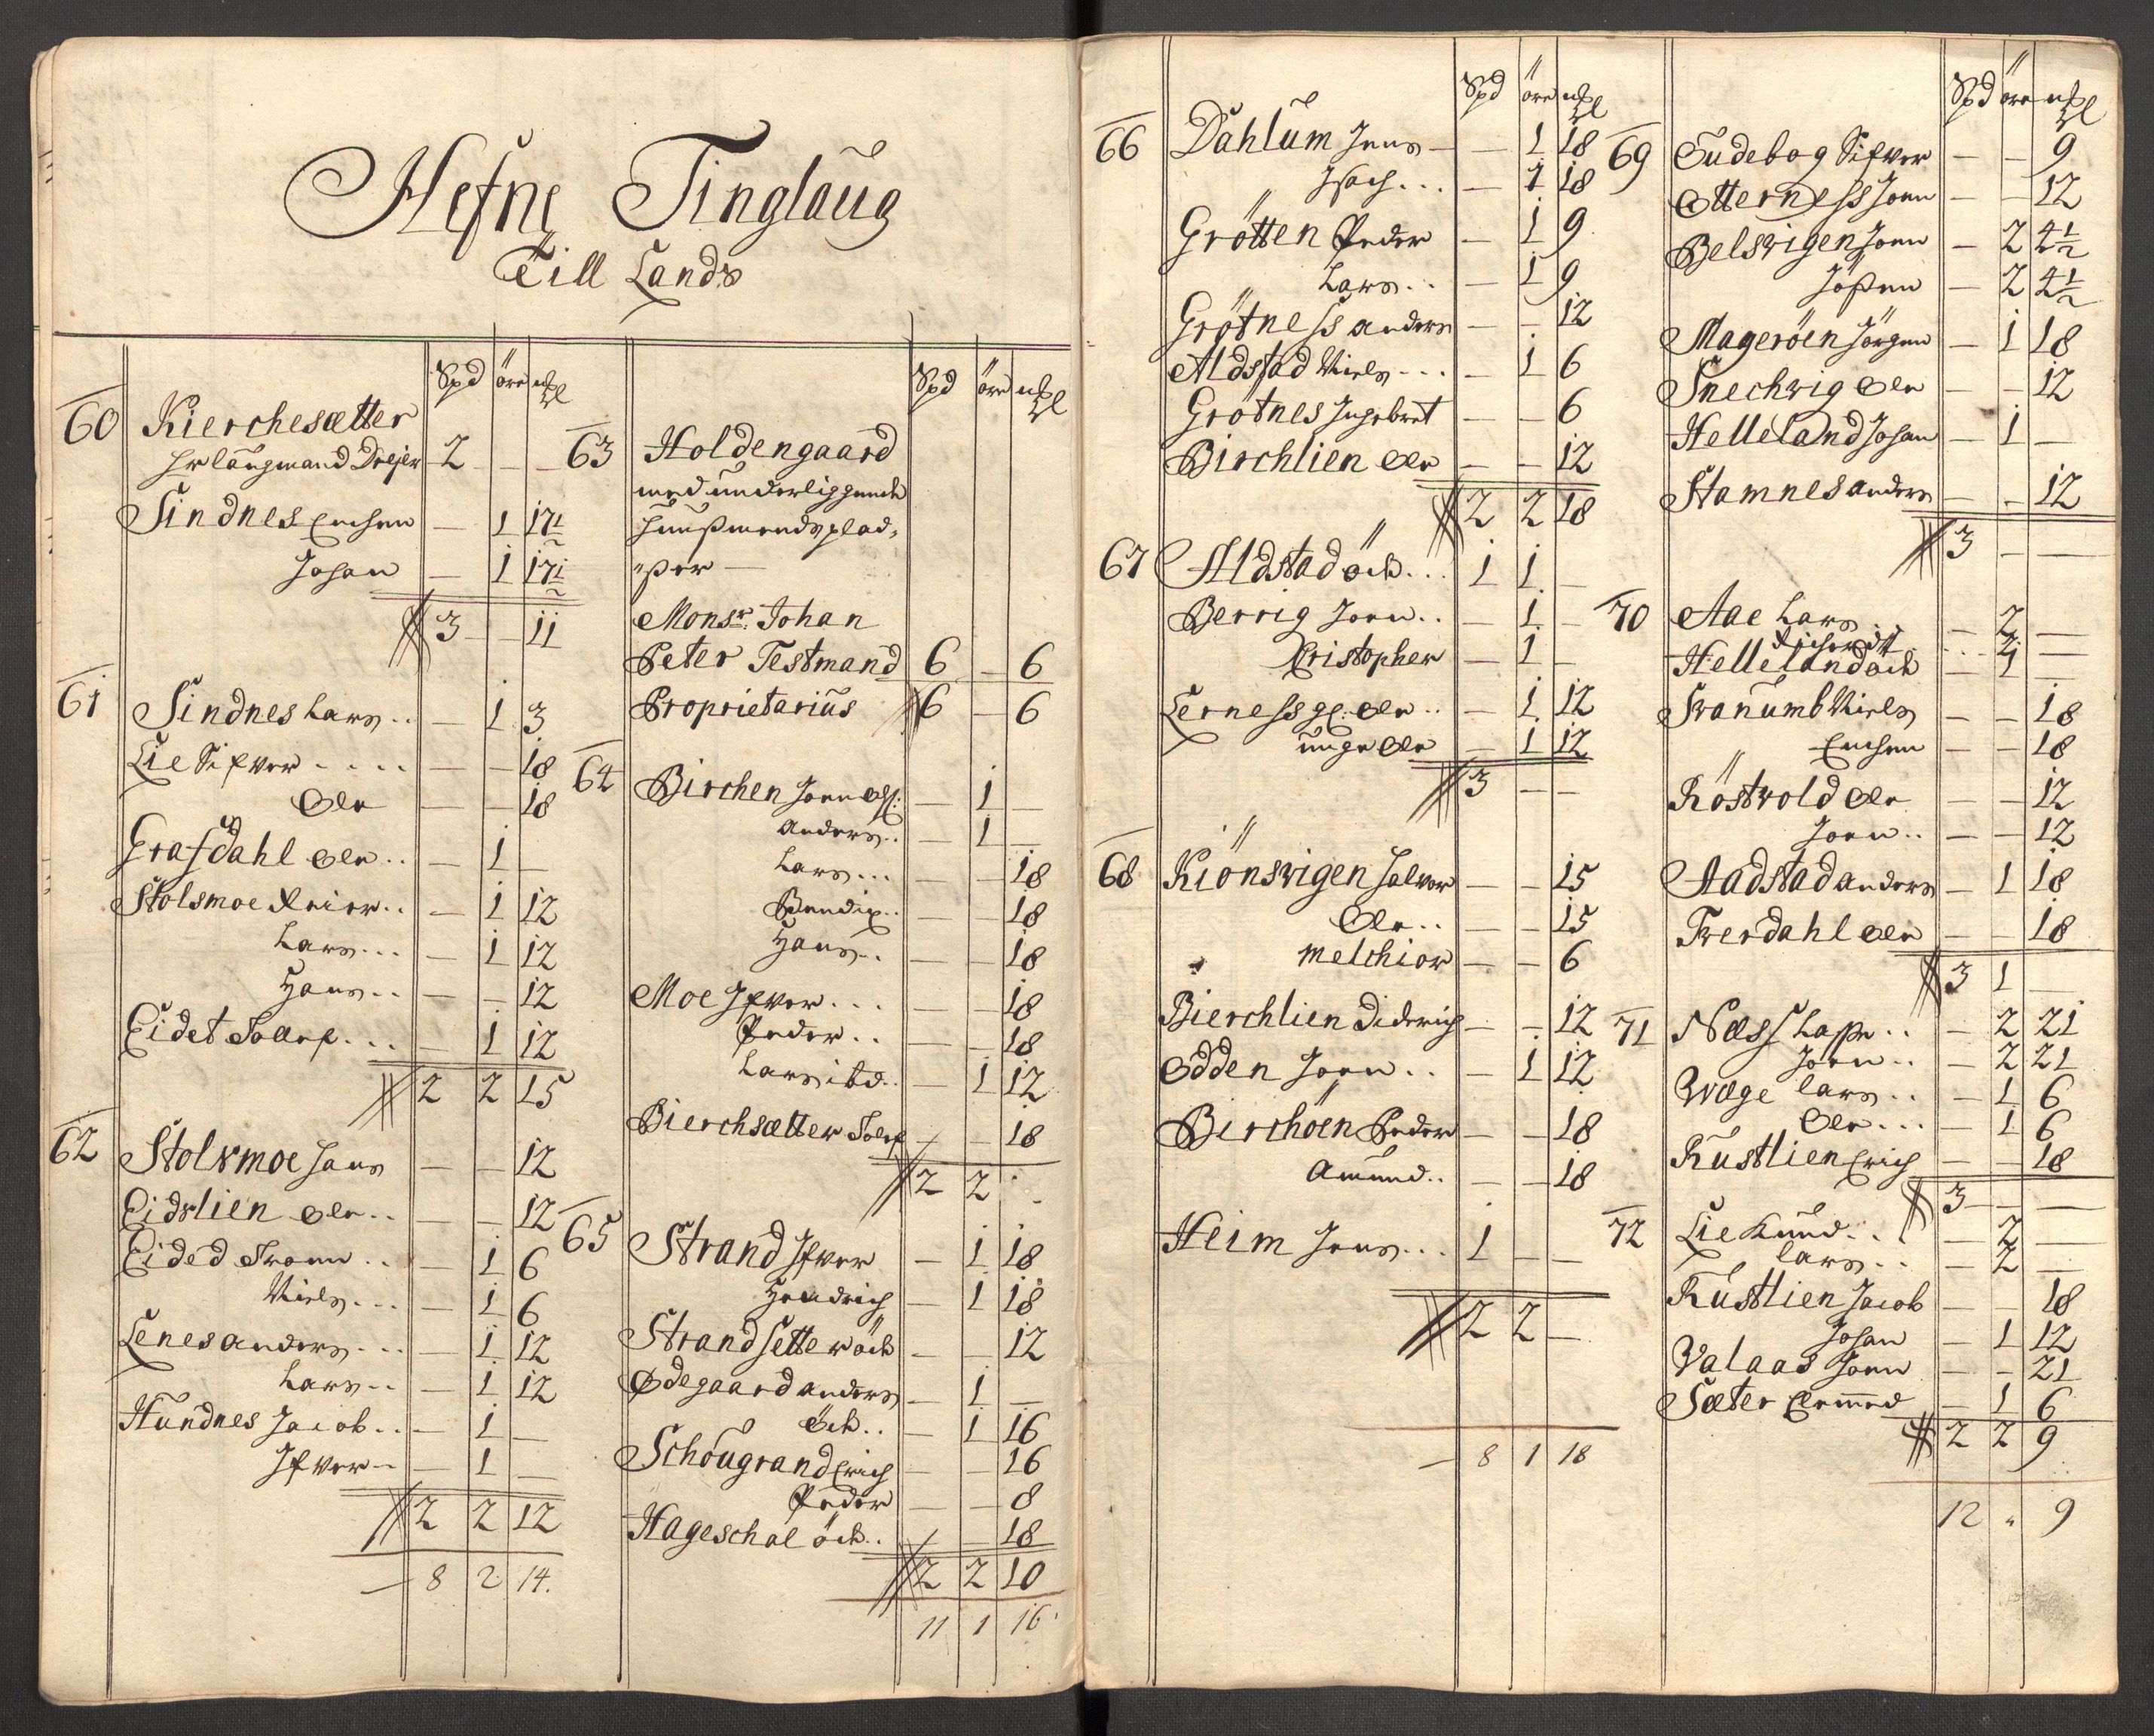 Hefne Tinglaug
Till Lands
Spd öre mkl
60 Kierchesætter
Hr laugmand Drejer 2 - -
Sindnes Enchen - 1 17½
Johan - 1 17½
3 - 11
61 Sindnes Lars .. - 1 3
Lie Sifver .... - - 18
Ole - - 18
Grafdahl Ole .. - 1 -
Stolsmoe Reier .. - 1 12
Lars ... - 1 12
Hans .. - - 12
Eidet Tollef ... - 1 12
2 2 15
62 Stolsmoe Hans - - 12
Eidslien Ole .. - - 12
Eided Svenn .. - 1 6
Niels ... - 1 6
Lenes Anders ... - 1 12
Lars .. - 1 12
Hundnes Jacob .. - 1 -
Ifver .. - 1 -
2 2 12
- 8 2 14.
Spd öre mkl
63 Holdengaard
med underliggende
Huusmends plad,
"ser -
Monsr. Johan
Peter Testmand 6 - 6
Proprietarius 6 - 6
64 Birchen Joen Ols: - 1 -
Anders .. - 1 -
Lars ... - - 18
Bendix .. - - 18
Hans .. - - 18
Moe Ifver ... - - 18
Peder .. - - 18
Lars ibd. - 1 12
Bierchsætter Tolef - - 18
2 2 -
65 Strand Ifver - 1 18
Hendrich - 1 18
Strandsetter öde - - 12
Ødegaard Anders - 1 -
öde .. - 1 16
Schougrand Erich - - 16
Peder - - 8
Hageschal öde .. - - 18
2 2 10
11 1 16
Spd öre mkl
66 Dahlum Jens - - 1 18
Isach ... - 1 18
Grötten Peder - 1 9
Lars .. - 1 9
Grötness Anders - - 12
Aldstad Niels ... - 1 6
Grötnes Ingebret - - 6
Birchlien Ole - - 12
2 2 18
67 Aldstad öde ... 1 1 -
Berrig Joen .. - 1 -
Christopher - 1 -
Lerness gl: Ole .. - 1 12
unge Ole - 1 12
3 - -
68 Kiönsvigen Halvor - - 15
Ole .. - - 15
Melchior - - 6
Bierchlien Diderich - - 12
Odden Joen .. - 1 12
Birchöen Peder - - 18
Amund .. - - 18
Heim Jens ... 1 - -
2 2 -
- 8 1 18
Spd öre mkl
69 Sudebog Sifver - - 9
Otterness Joen - - 12
Belsvigen Joen - 2 4½
Jössen - 2 4½
Mageröen Jörgen - 1 18
Snechvig Ole - - 12
Helleland Johan - 1 -
Stamnes Anders - - 12
3 - -
70 Aae Lars - 2 -
Richardt - 2 -
Helleland öde - 1 -
Svanumb Niels - - 18
Enchen - - 18
Röstvold Ole - - 12
Joen .. - - 12
Aadstad Anders - 1 18
Tverdahl Ole - - 18
3 1 -
71 Næss Lasse .. - 2 21
Joen .. - 2 21
Wæge Lars .. - 1 6
Ole ... - 1 6
Rustlien Erich - - 18
3 - -
72 Lie Knud .. - 2 -
Lars .. - 2 -
Rustlien Jacob - - 18
Johan - 1 12
Valaas Joen - - 21
Sæter - 1 6
2 2 9
12 " 9